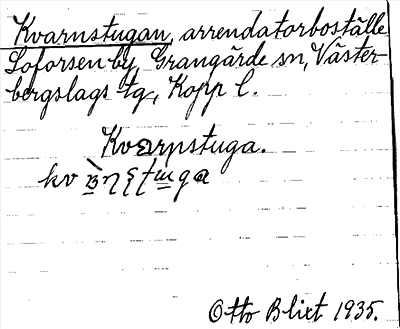 Kvarnstugan, arrendatorboställe
Loforsen by, Grangärde sn, Väster-
bergslags tg, Kopp l.
Kvarnstuga.
Otto Blixt 1935.